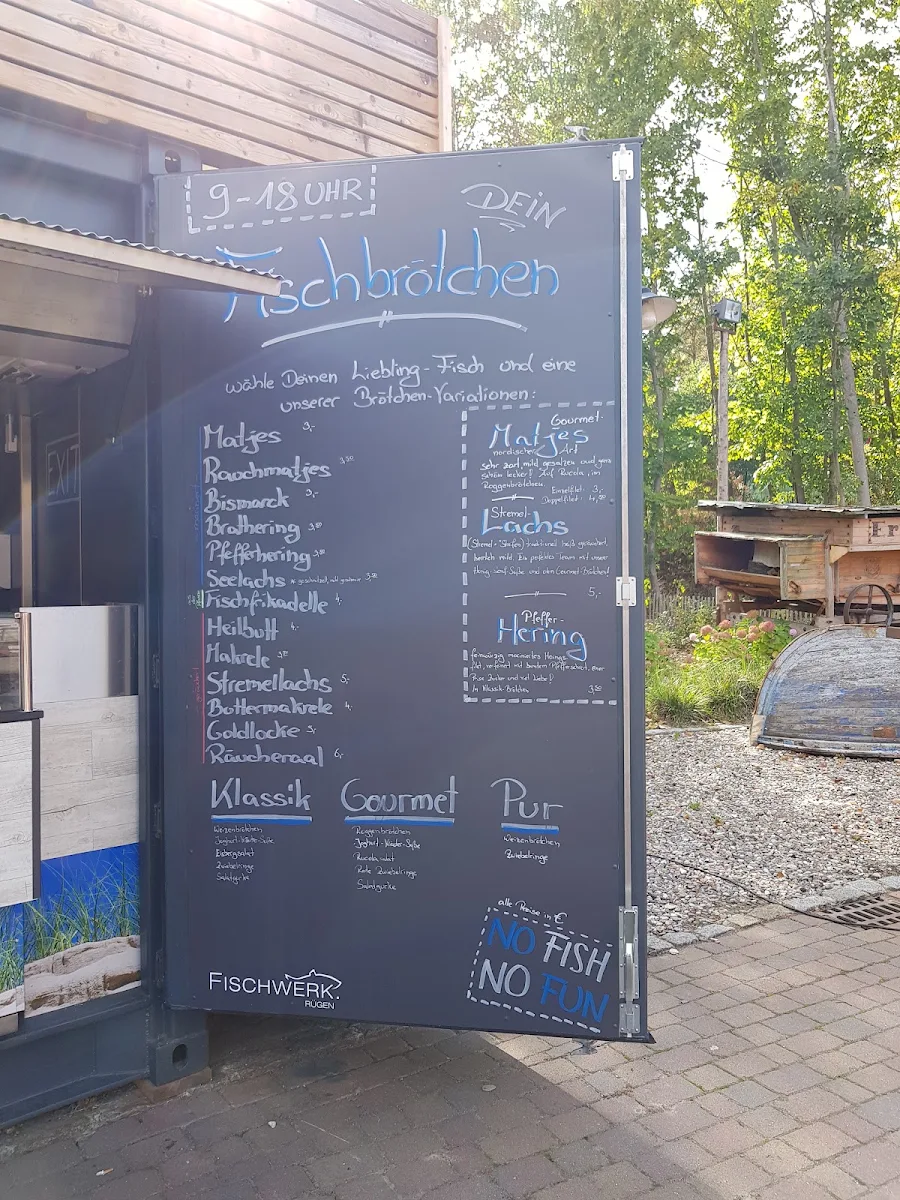 9-18 UHR
DEIN
Fischbrötchen
wähle Deinen Liebling-Fisch und eine
unserer Brötchen-Variationen:
EXIT
Matjes 3,-
Rauchmatjes 3,50
Bismarck 3,-
Brathering 3,50
Pfefferhering 3,50
Seelachs 3,50
Fischfrikadelle 4,-
Heilbutt 4,-
Makrele
Stremellachs 5,-
Buttermakrele 4,-
Goldlocke 5,-
Räucheraal 6,-
Gourmet-
Matjes
nordischer Art
sehr zart, mild gesalzen und ganz
schön lecker! Auf Rucola, im
Roggenbrötchen.
Einzelfilet: 3,-
Doppelfilet: 4,50
Stremel-
Lachs
(Stremel = Streifen) traditionell heiß geräuchert,
herrlich mild. Ein perfektes Team mit unserer
Honig-Senf-Soße und dem Gourmet-Brötchen!
5,-
Pfeffer-
Hering
feinwürzig mariniertes Herings-
filet, verfeinert mit buntem Pfefferschrot, einer
Prise Zucker und viel Liebe!
Im Klassik-Brötchen 3,50
Klassik
Weizenbrötchen
Joghurt-Kräuter-Soße
Eisbergsalat
Zwiebelringe
Salatgurke
Gourmet
Roggenbrötchen
Joghurt-Kräuter-Soße
Rucolasalat
Rote Zwiebelringe
Salatgurke
Pur
Weizenbrötchen
Zwiebelringe
alle Preise in €
NO FISH
NO FUN
FISCHWERK.
RÜGEN